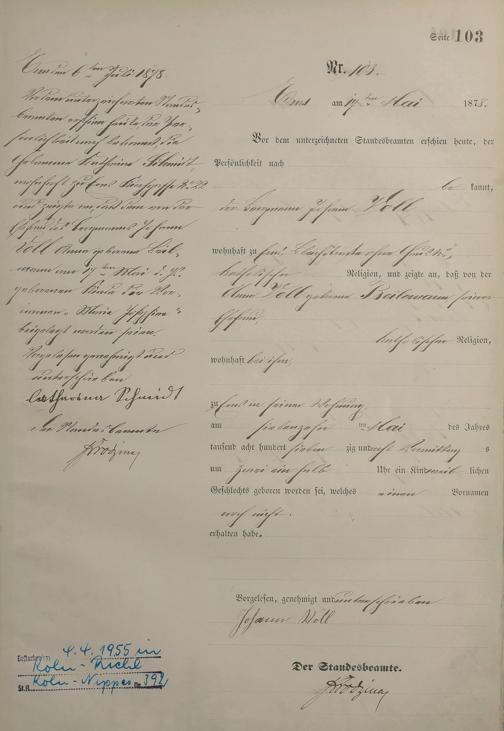 Seite 103
Nr. 103.
Ems am 19ten Mai 1878
Vor dem unterzeichneten Standesbeamten erschien heute, der
Persönlichkeit nach
be kannt,
der Bergmann Johann Voll
wohnhaft zu Ems,
katholischer Religion, und zeigte an, daß von der
Anna Voll geborene seiner
Ehefrau,
katholischer Religion,
wohnhaft bei ihm,
zu Ems in seiner Wohnung
am siebenzehnten Mai des Jahres
tausend acht hundert sieben zig und acht Vormittags
um zwei ein halb Uhr ein Kind weib lichen
Geschlechts geboren worden sei, welches einen Vornamen
noch nicht
erhalten habe.
Vorgelesen, genehmigt und unterschrieben
Johann Voll
Der Standesbeamte.
Ems den 6ten Juli 1878.
Vor dem unterzeichneten Standes-
beamten erschien heute, der Per-
sönlichkeit nach bekannt, die
Hebamme Schmidt
wohnhaft zu Ems
und zeigte an, daß dem von der
Ehefrau des Bergmanns Johann
Voll Anna geborene
am 17ten Mai d. Js.
geborenen Kinde die Vor-
namen Maria Josephine
beigelegt worden seien.
Vorgelesen genehmigt und
unterschrieben
Catharina Schmidt
Der Standesbeamte
4.4.1955 in
Köln-Riehl
St.A. Köln-Nippes Nr. 392